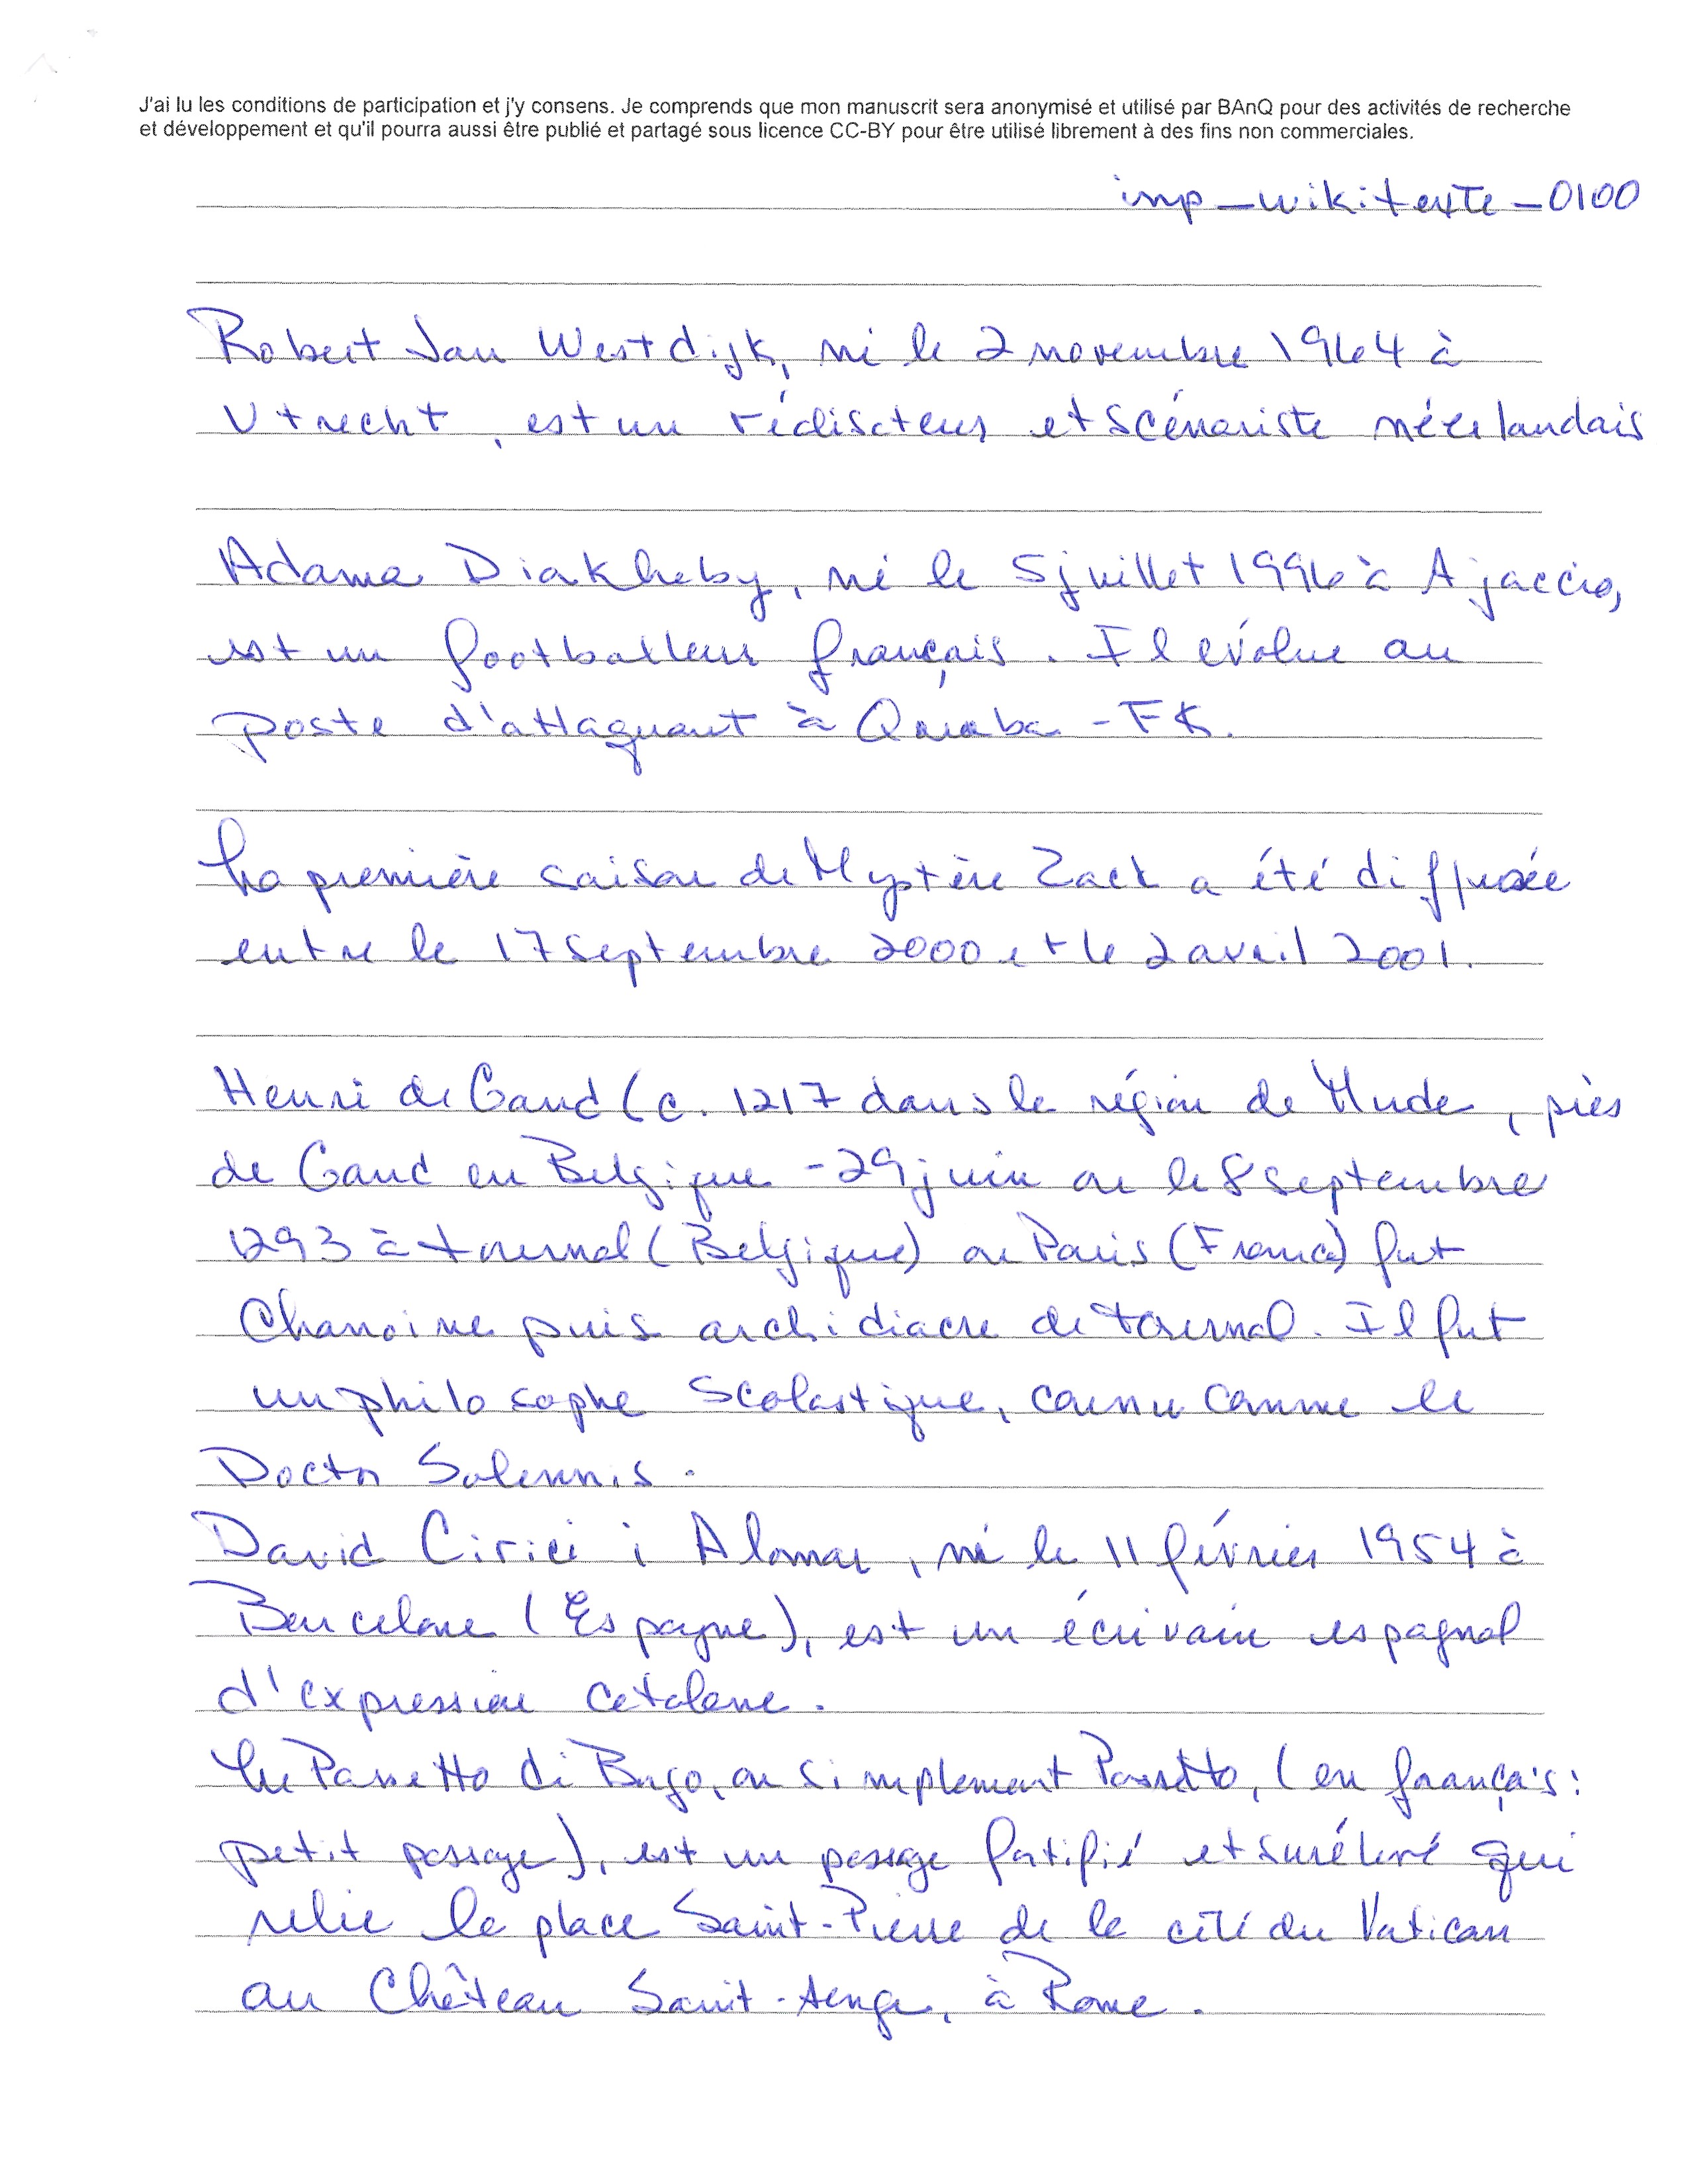 J'ai lu les conditions de participation et j'y consens. Je comprends que mon manuscrit sera anonymisé et utilisé par BAnQ pour des activités de recherche
et développement et qu'il pourra aussi être publié et partagé sous licence CC-BY pour être utilisé librement à des fins non commerciales.
imp_wikitexte_0100
Robert Jan Westdijk, né le 2 novembre 1964 à
Utrecht, est un réalisateur et scénariste néerlandais
Adama Diakhaby, né le 5 juillet 1996 à Ajaccio,
est un footballeur français. Il évolue au
poste d'attaquant à - FK.
La première saison de Mystère Zack a été diffusée
entre le 17 septembre 2000 et le 2 avril 2001.
Henri de Gand (c. 1217 dans la région de Mude, près
de Gand en Belgique - 29 juin ou le 8 septembre
1293 à tournal (Belgique) ou Paris (France) fut
Chanoine puis archidiacre de tournal. Il fut
un philosophe Scolastique, connu comme le
Doctor Solennis.
David Cirici i Alomar, né le 11 février 1954 à
Barcelone (Espagne), est un écrivain espagnol
d'expression catalane.
Le Passetto di Borgo, ou simplement Passetto, (en français :
petit passage), est un passage fortifié et surélevé qui
relie la place Saint-Pierre de la cité du Vatican
au Château Saint-Ange, à Rome.